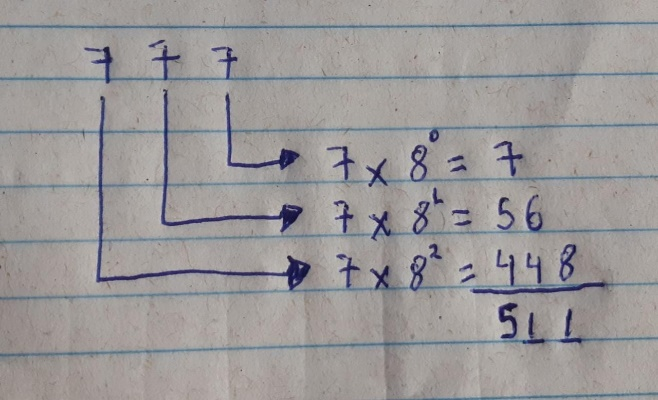 7 7 7
7 x 8⁰ = 7
7 x 8¹ = 56
7 x 8² = 448
511